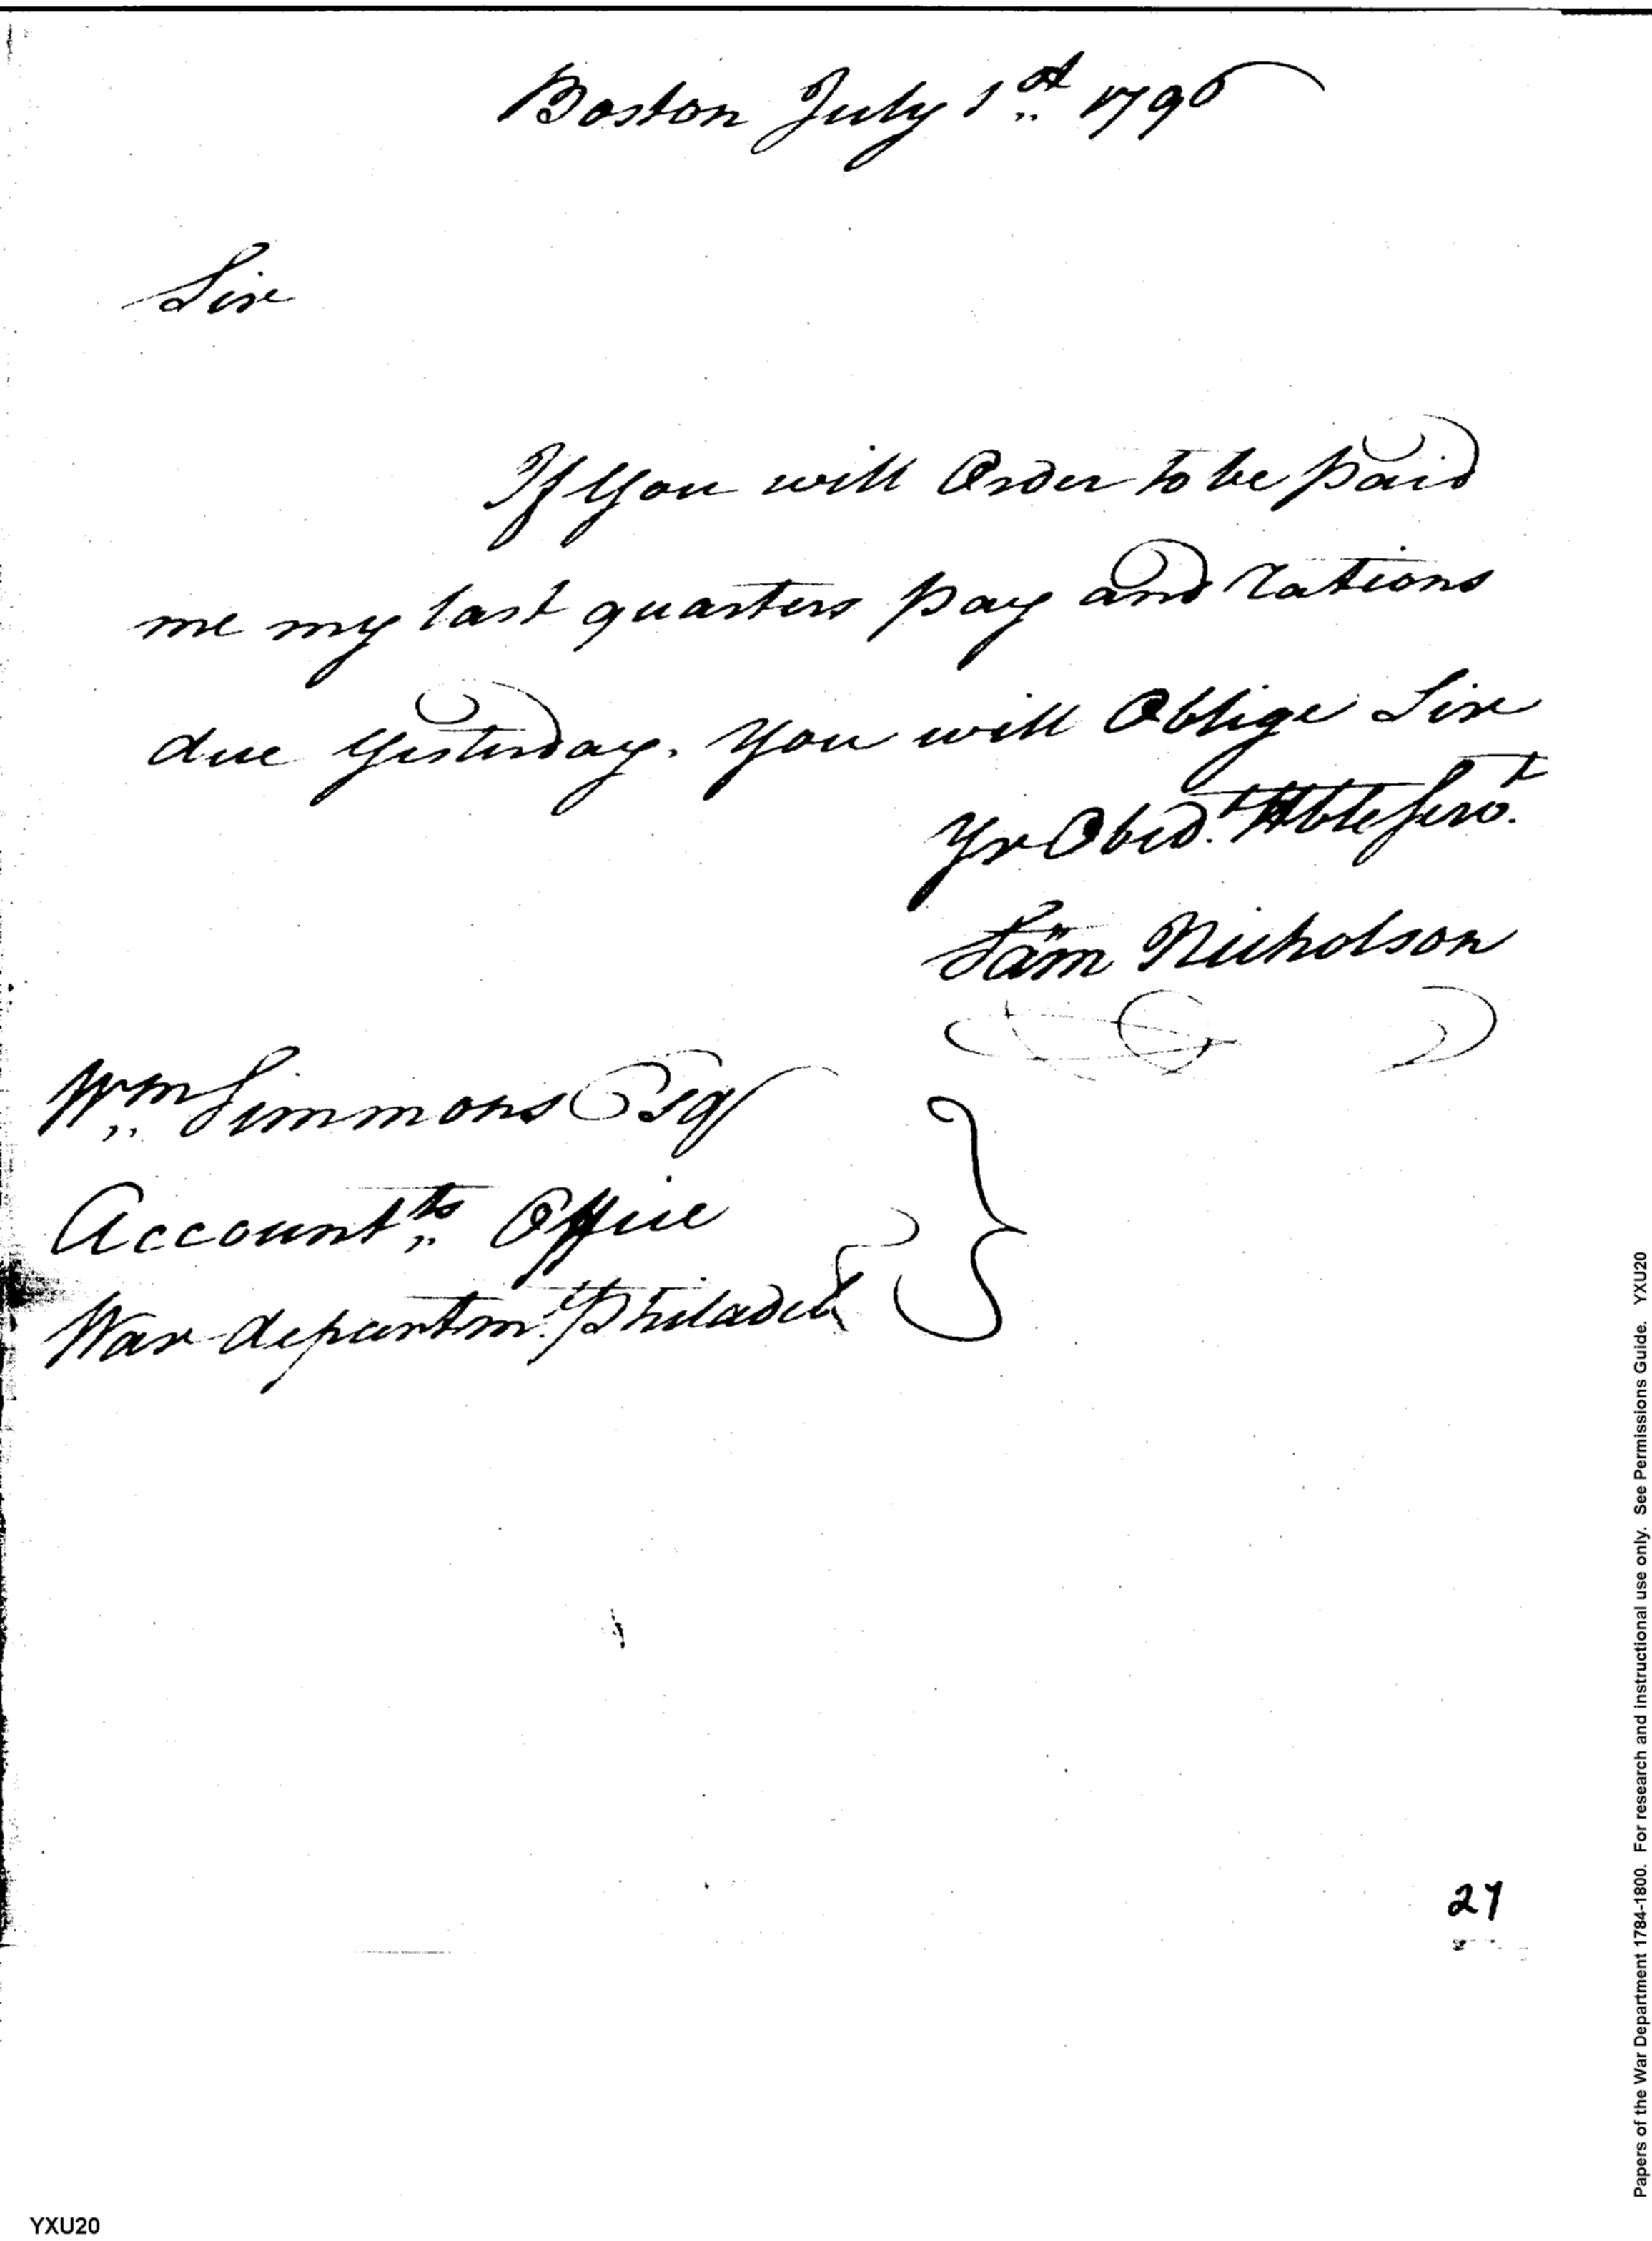 Boston July 1st 1796
Sir
If You will Order to be paid
me my last quarters pay and rations
due Yesterday. You will Oblige Sir
Yr Obedt Hble Servt
Sam Nicholson
Wm Simmons Esqr
Accountts Office
War departmt Philadel
27
Papers of the War Department 1784-1800. For research and instructional use only. See Permissions Guide. YXU20
YXU20